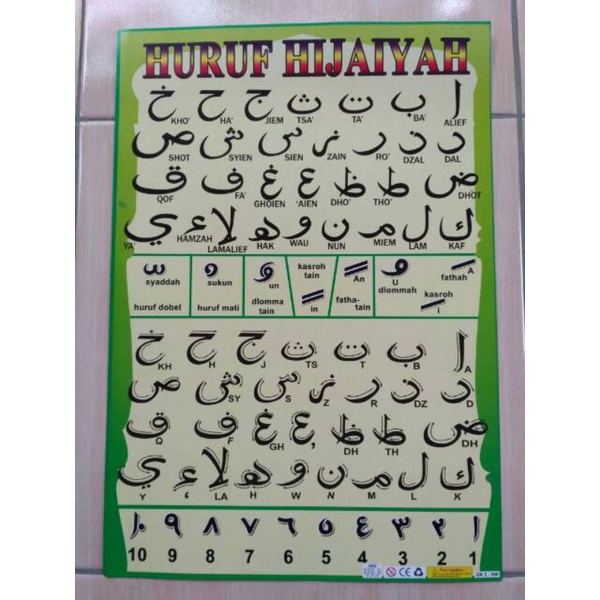 HURUF HIJAIYAH
ا ب ت ث ج ح خ
ALIEF BA' TA' TSA' JIEM HA' KHO'
د ذ ر ز س ش ص
DAL DZAL RO' ZAIN SIEN SYIEN SHOT
ض ط ظ ع غ ف ق
DHOT THO' DHO' 'AIEN GHOIEN FA' QOF
ك ل م ن و ه لا ء ي
KAF LAM MIEM NUN WAU HAK LAMALIEF HAMZAH YA'
syaddah
huruf dobel
sukun
huruf mati
un
dlomma
tain
kasroh
tain
in
An
fatha-
tain
U
dlommah
fathah A
kasroh
i
ا ب ت ث ج ح خ
A B T TS J H KH
د ذ ر ز س ش ص
D DZ R Z S SY
ض ط ظ ع غ ف ق
DH TH DH ' GH F Q
ك ل م ن و ه لا ء ي
K L M N W H LA ‘ Y
١ ٢ ٣ ٤ ٥ ٦ ٧ ٨ ٩ ١٠
10 9 8 7 6 5 4 3 2 1